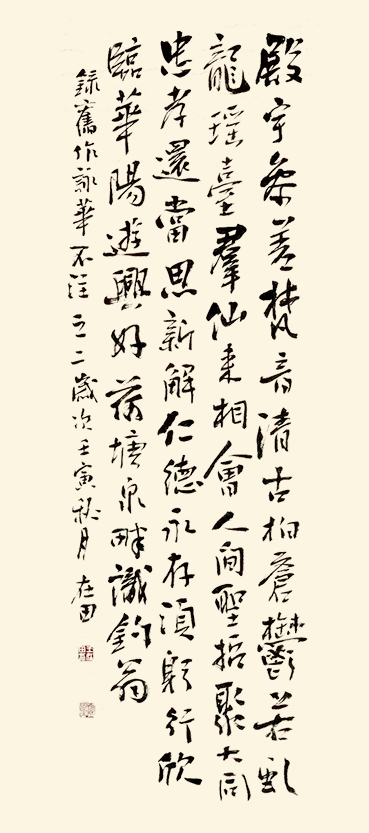 殿宇參差梵音清古柏蒼鬱若虬
龍瑤臺羣仙來相會人間聖哲聚大同
忠孝還當思新解仁德永存須躬行欣
臨華陽遊興好荷塘泉畔識釣翁
錄舊作詠華不注之二歲次壬寅秋月在田